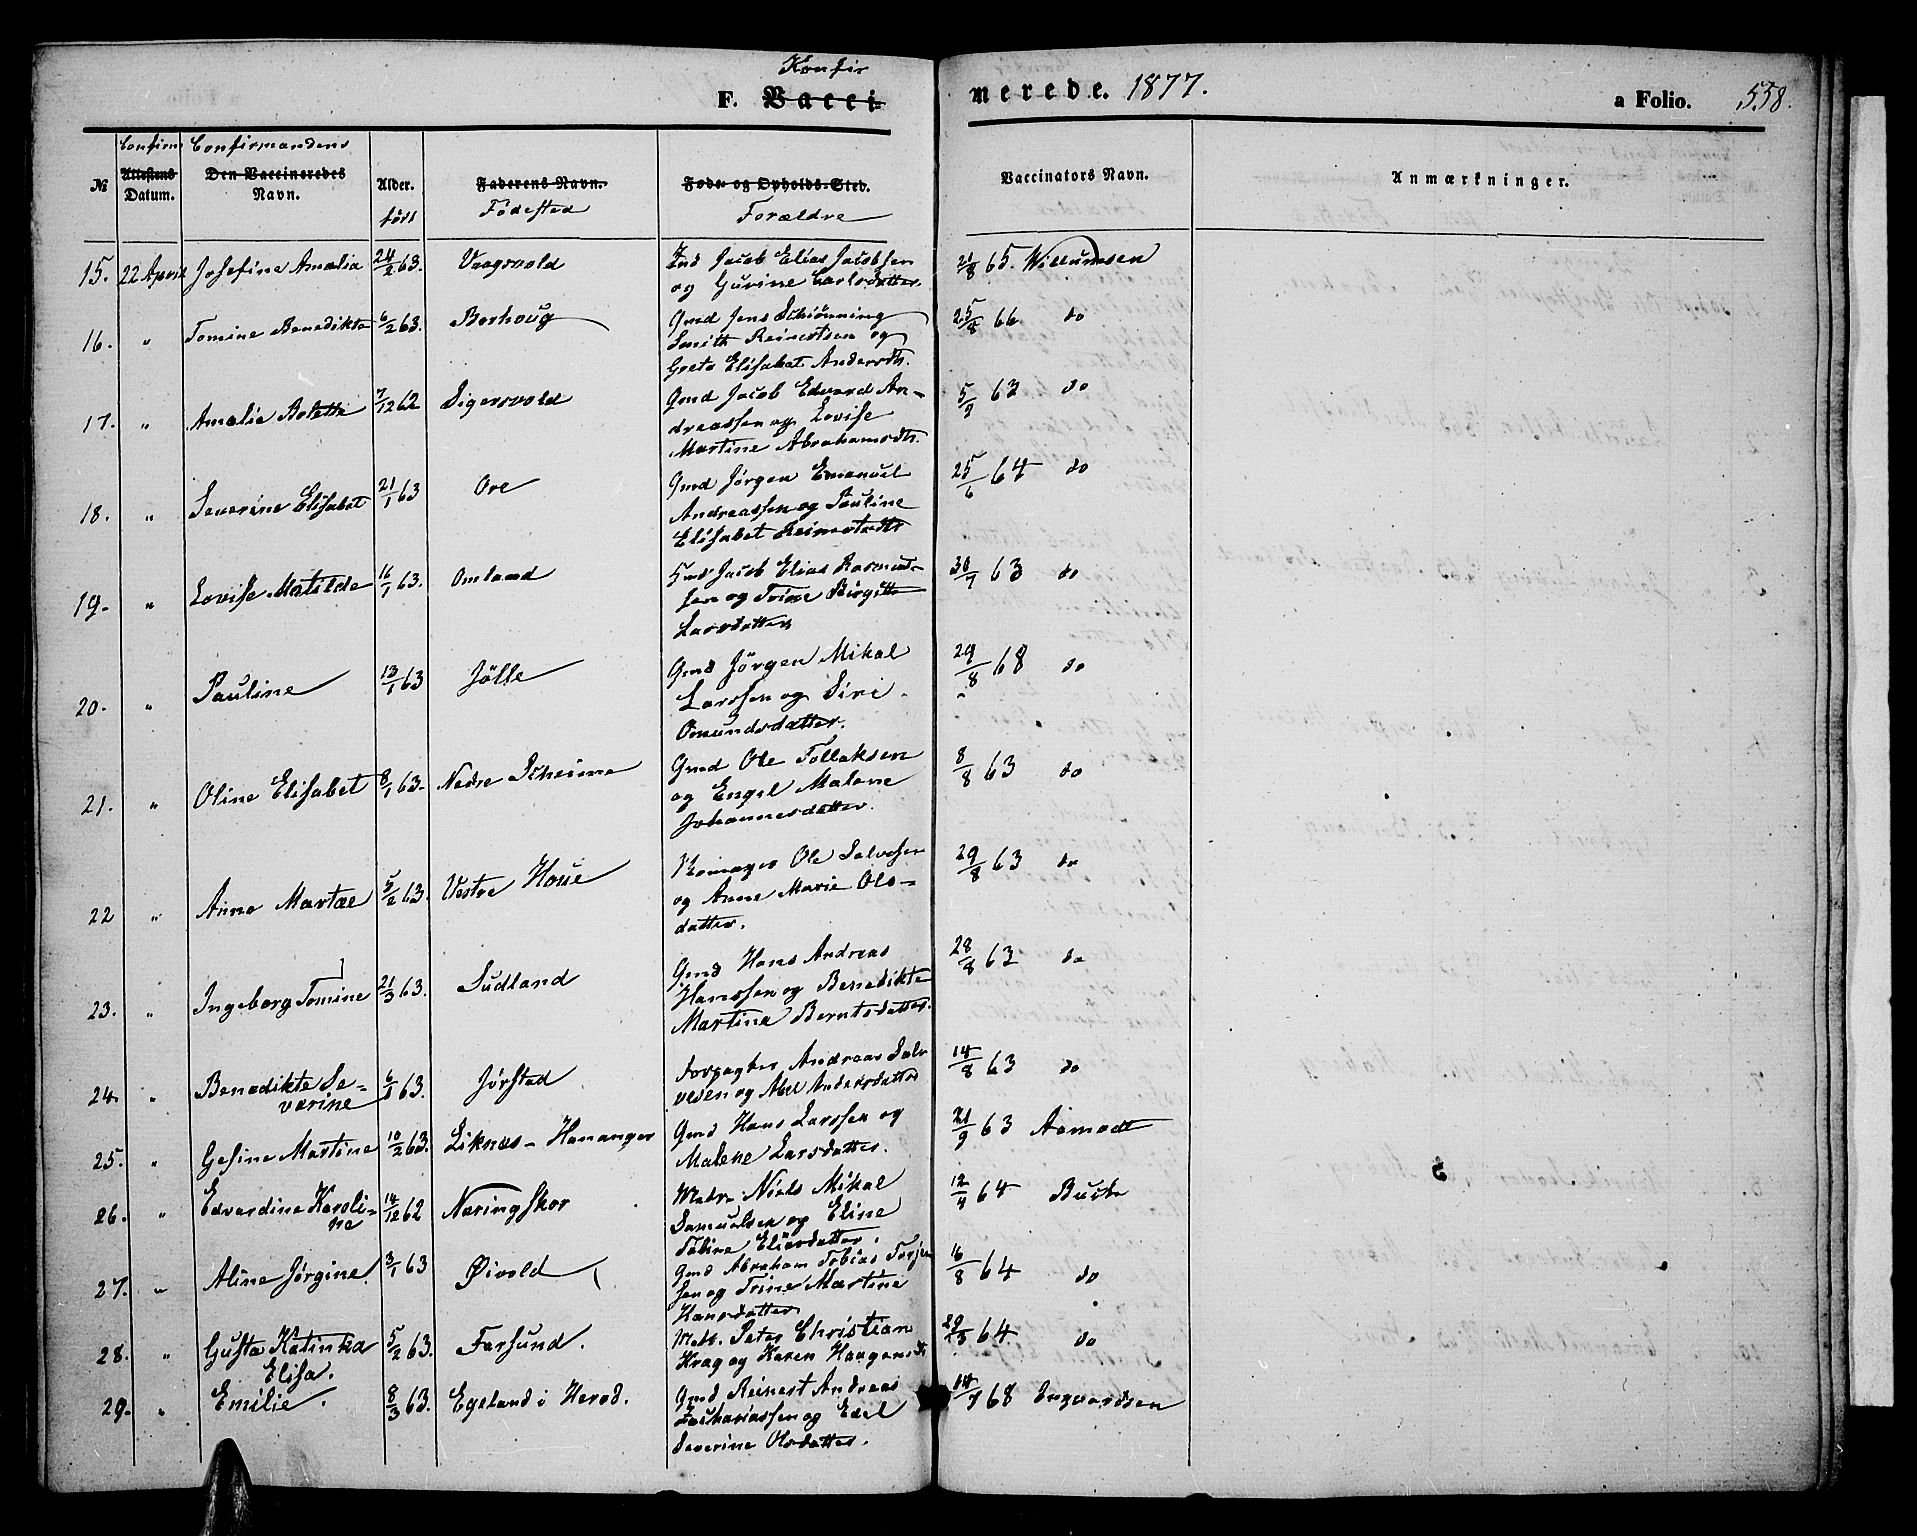 Konfir
F. Vacci-
merede. 1877.
a Folio. 558.
Confirm Confirmandens
№ Attestens Datum. Den Vaccineredes Navn. Alder. født Faderens Navn. Fødested Føde- og Opholds-Sted. Forældre Vaccinators Navn. Anmærkninger.
15. 22 April Josefine Amalia 24/2 63. Vaagsvold Ind Jacob Elias Jacobsen 21/8 65. Willumsen
og Gurine Carlsdatter.
16. " Tomine Benedikte 6/2 63. Borhoug Gmd Jens Schiønning 25/8 66 do
Smith Reinertsen og
Grete Elisabet Andersdtr.
17. " Amalie Bolette 7/12 62 Sigersvold Gmd Jacob Edvard An- 5/9 63 do
dreassen og Lovise
Martine Abrahamsdtr.
18. " Severine Elisabet 21/1 63 Ore Gmd Jørgen Emanuel 25/6 64 do
Andreassen og Pauline
Elisabet Reinertsdtr
19. " Lovise Matilde 16/1 63. Omland Smd Jacob Elias Rasmus- 30/7 63 do
sen og Trine Birgitte
Larsdatter
20. " Pauline 13/1 63 Jølle Gmd Jørgen Mikal 29/8 68 do
Larssen og Siri
Omundsdatter.
21. " Oline Elisabet 8/1 63. Nedre Skeime Gmd Ole Tollaksen 8/8 63 do
og Engel Malene
Johannesdatter.
22 " Anne Martæ 5/2 63. Vestre Houe Skomager Ole Salvesen 29/8 63 do
og Anne Marie Ols-
datter.
23. " Ingeborg Tomine 21/3 63. Sudland Gmd Hans Andreas 28/8 63 do
Hanssen og Benedikte
Martina Berntsdatter.
24. " Benedikte Se- 6/1 63. Jørsted Forpagter Andreas Sal- 14/8 63 do
verine vesen og Abel Andersdatter
25. " Gesine Martine 10/2 63. Liknæs-Hananger Gmd Hans Larssen og 21/9 63 Aamodt
Malene Larsdatter.
26. " Edvardine Karoli- 14/12 62 Næringskor Matr. Niels Mikal 12/4 64 Buch
ne Samuelsen og Eline
Tobine Eliasdatter.
27. " Aline Jørgine. 3/1 63 Øivold Gmd Abraham Tobias Torjen 16/8 64 do
sen og Trine Martine
Hansdatter
28. " Gusta Katinka 5/2 63. Farsund. Matr. Peter Christian 64. do
Elisa. Krag og Karen Haagensdt
29. " Emilie. 8/3 63. Egeland i Herad. Gmd Reinert Andreas 68 Ingvardsen
Zachariassen og Edel
Severine Olsdatter.